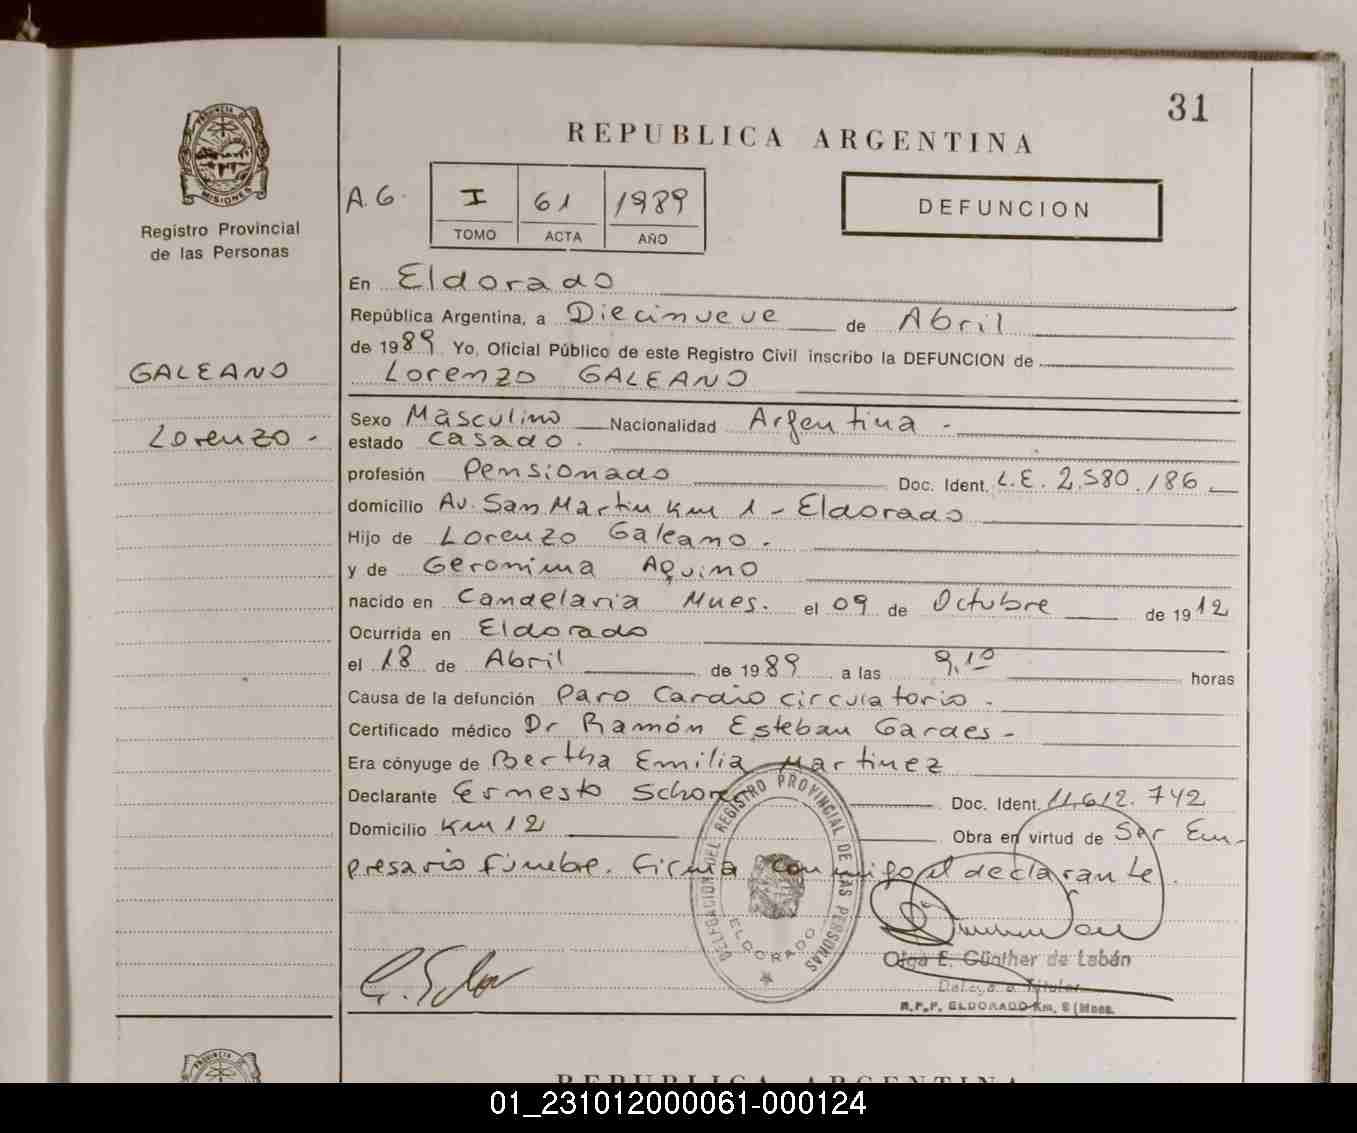 31
PROVINCIA DE
MISIONES
Registro Provincial
de las Personas
GALEANO
Lorenzo -
REPUBLICA ARGENTINA
A.G. I 61 1989
TOMO ACTA AÑO
DEFUNCION
En Eldorado
República Argentina, a Diecinueve de Abril
de 1989 Yo, Oficial Público de este Registro Civil inscribo la DEFUNCION de
Lorenzo GALEANO
Sexo Masculino Nacionalidad Argentina -
estado casado.
profesión Pensionado Doc. Ident. L.E. 2.580.186
domicilio Av. San Martin Km 1 - Eldorado
Hijo de Lorenzo Galeano.
y de Geronima Aquino
nacido en Candelaria Mnes. el 09 de Octubre de 1912
Ocurrida en Eldorado
el 18 de Abril de 1989 a las 9,10 horas
Causa de la defunción Paro Cardio circulatorio -
Certificado médico Dr Ramón Esteban Gardes -
Era cónyuge de Bertha Emilia Martinez
Declarante Ernesto Doc. Ident. 11.612.742
Domicilio Km 12 Obra en virtud de Ser Em-
presario fúnebre. Firma conmigo el declarante.
DELEGACION DEL REGISTRO PROVINCIAL DE LAS PERSONAS
ELDORADO
Olga E. Günther de Labán
Delegada Titular
R.P.P. ELDORADO Km. 9 (Mnes.
PROVINCIA DE
REPUBLICA ARGENTINA
01_231012000061-000124